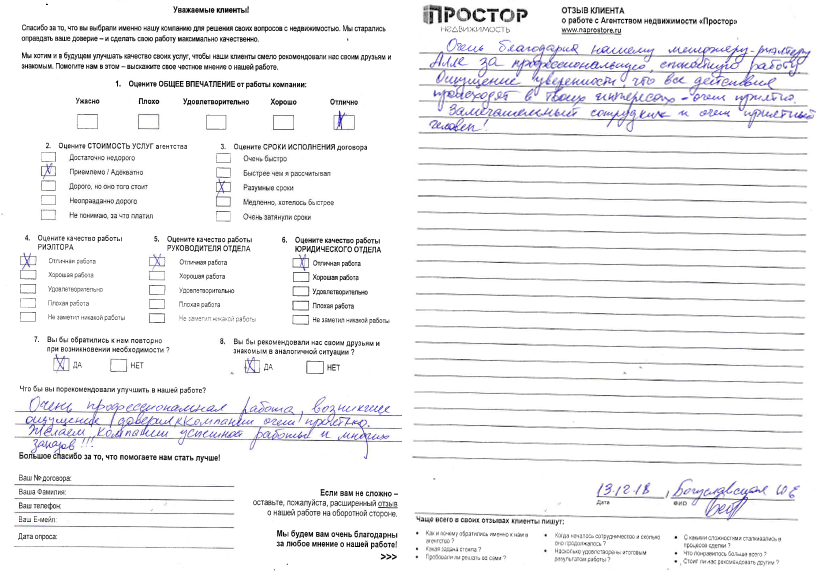 Уважаемые клиенты!
Спасибо за то, что вы выбрали именно нашу компанию для решения своих вопросов с недвижимостью. Мы старались
оправдать ваше доверие – и сделать свою работу максимально качественно.
Мы хотим и в будущем улучшать качество своих услуг, чтобы наши клиенты смело рекомендовали нас своим друзьям и
знакомым. Помогите нам в этом – выскажите свое честное мнение о нашей работе.
1. Оцените ОБЩЕЕ ВПЕЧАТЛЕНИЕ от работы компании:
Ужасно Плохо Удовлетворительно Хорошо Отлично
2. Оцените СТОИМОСТЬ УСЛУГ агентства
Достаточно недорого
Приемлемо / Адекватно
Дорого, но оно того стоит
Неоправданно дорого
Не понимаю, за что платил
3. Оцените СРОКИ ИСПОЛНЕНИЯ договора
Очень быстро
Быстрее чем я рассчитывал
Разумные сроки
Медленно, хотелось быстрее
Очень затянули сроки
4. Оцените качество работы
РИЭЛТОРА
Отличная работа
Хорошая работа
Удовлетворительно
Плохая работа
Не заметил никакой работы
5. Оцените качество работы
РУКОВОДИТЕЛЯ ОТДЕЛА
Отличная работа
Хорошая работа
Удовлетворительно
Плохая работа
Не заметил никакой работы
6. Оцените качество работы
ЮРИДИЧЕСКОГО ОТДЕЛА
Отличная работа
Хорошая работа
Удовлетворительно
Плохая работа
Не заметил никакой работы
7. Вы бы обратились к нам повторно
при возникновении необходимости ?
ДА НЕТ
8. Вы бы рекомендовали нас своим друзьям и
знакомым в аналогичной ситуации ?
ДА НЕТ
Что бы вы порекомендовали улучшить в нашей работе?
Очень профессиональная работа, возникшее
ощущение доверия к компании очень приятно.
Желаем компании успешной работы и многих
заказов!!!
Большое спасибо за то, что помогаете нам стать лучше!
Ваш № договора:
Ваша Фамилия:
Ваш телефон:
Ваш E-мейл:
Дата опроса:
Если вам не сложно –
оставьте, пожалуйста, расширенный отзыв
о нашей работе на оборотной стороне.
Мы будем вам очень благодарны
за любое мнение о нашей работе!
>>>
ПРОСТОР
НЕДВИЖИМОСТЬ
ОТЗЫВ КЛИЕНТА
о работе с Агентством недвижимости «Простор»
www.naprostore.ru
Очень благодарна нашему менеджеру-риэлтору
Алле за профессиональную, спокойную работу.
Ощущение уверенности, что все действия
происходят в твоих интересах - очень приятно.
Замечательный сотрудник и очень приятный
человек!
13.12.18, Богуславская Ю Е
Дата ФИО
Чаще всего в своих отзывах клиенты пишут:
• Как и почему обратились именно к нам в
агентство ?
• Какая задача стояла ?
• Пробовали ли решать ее сами ?
• Когда началось сотрудничество и сколько
оно продолжалось ?
• Насколько удовлетворены итоговым
результатом работы ?
• С какими сложностями сталкивались в
процессе сделки ?
• Что понравилось больше всего ?
• Стоит ли нас рекомендовать другим ?